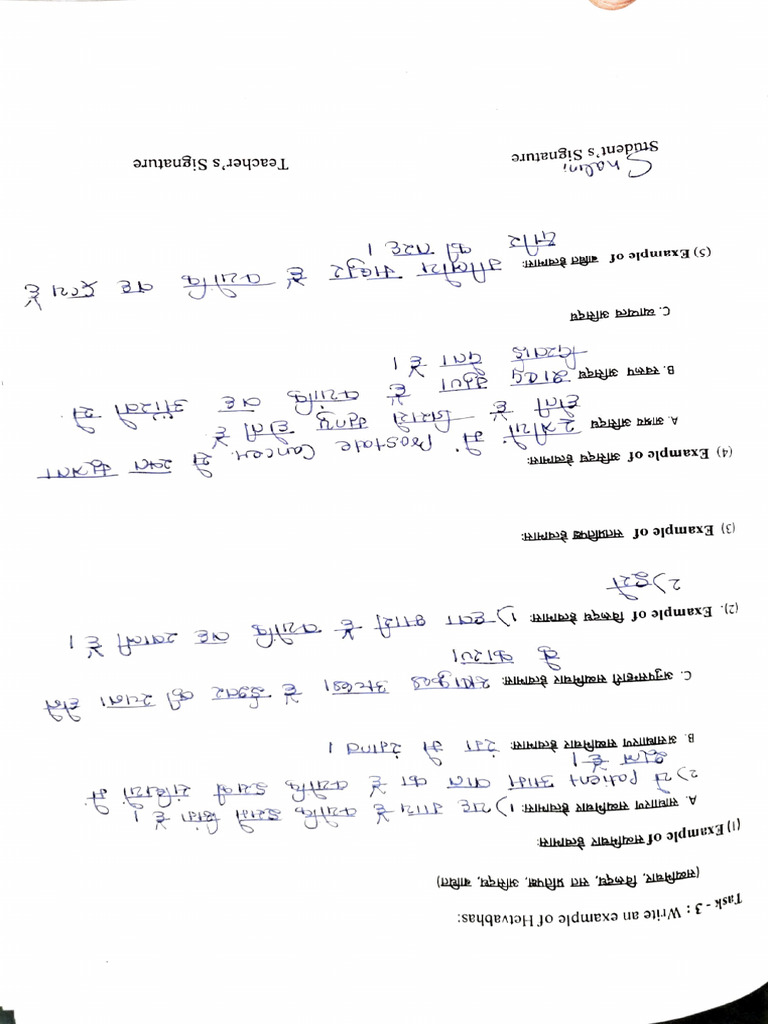 Task - 3 : Write an example of Hetvabhas:
(सव्यभिचार, विरूद्ध, सत प्रतिपक्ष, असिद्ध, बाधित)
(1) Example of सव्यभिचार हेत्वाभास:
A. साधारण सव्यभिचार हेत्वाभास: 1) यह गाय है क्योंकि इसके सिंग है।
2) ये Patient आम वात का है क्योंकि इसकी संधियों में
शूल है।
B. असाधारण सव्यभिचार हेत्वाभास: रंग में रंगत्व।
C. अनुपसंहारी सव्यभिचार हेत्वाभास: अच्छा है ईश्वर की रचना होने
के कारण।
(2). Example of विरूद्ध हेत्वाभास: 1) हवा भारी है क्योंकि वह खाली है।
2)
(3) Example of सतप्रतिपक्ष हेत्वाभास:
(4) Example of असिद्ध हेत्वाभास:
A. आश्रय असिद्ध स्त्रीयों में Prostate Cancer से रक्त
होती है मृत्यु होती है
B. स्वरूप असिद्ध शब्द गुण है क्योंकि वह आँखों से
देता है।
C. व्याप्यत्व असिद्ध
(5) Example of बाधित हेत्वाभास: मधुर है क्योंकि वह द्रव्य है
क्षीर की तरह।
Shalini
Student's Signature Teacher's Signature